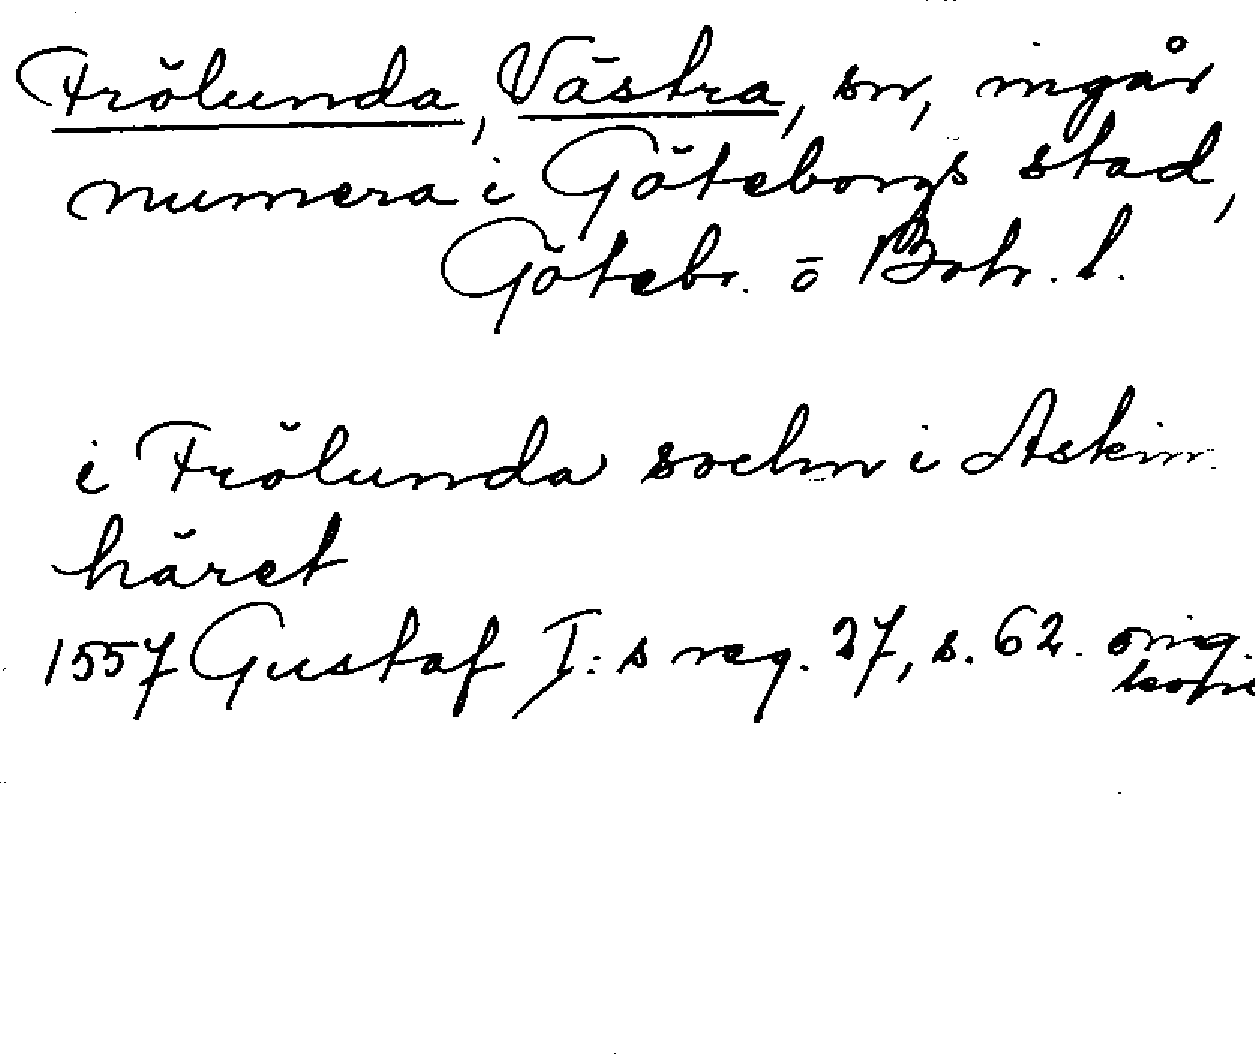 Frölunda, Västra, sn, ingår
numera i Göteborgs stad,
Götebr. o Boh. l.
i Frölunda sochn i Askim
häret
1557 Gustaf I:s reg. 27, s. 62. orig.
kopia